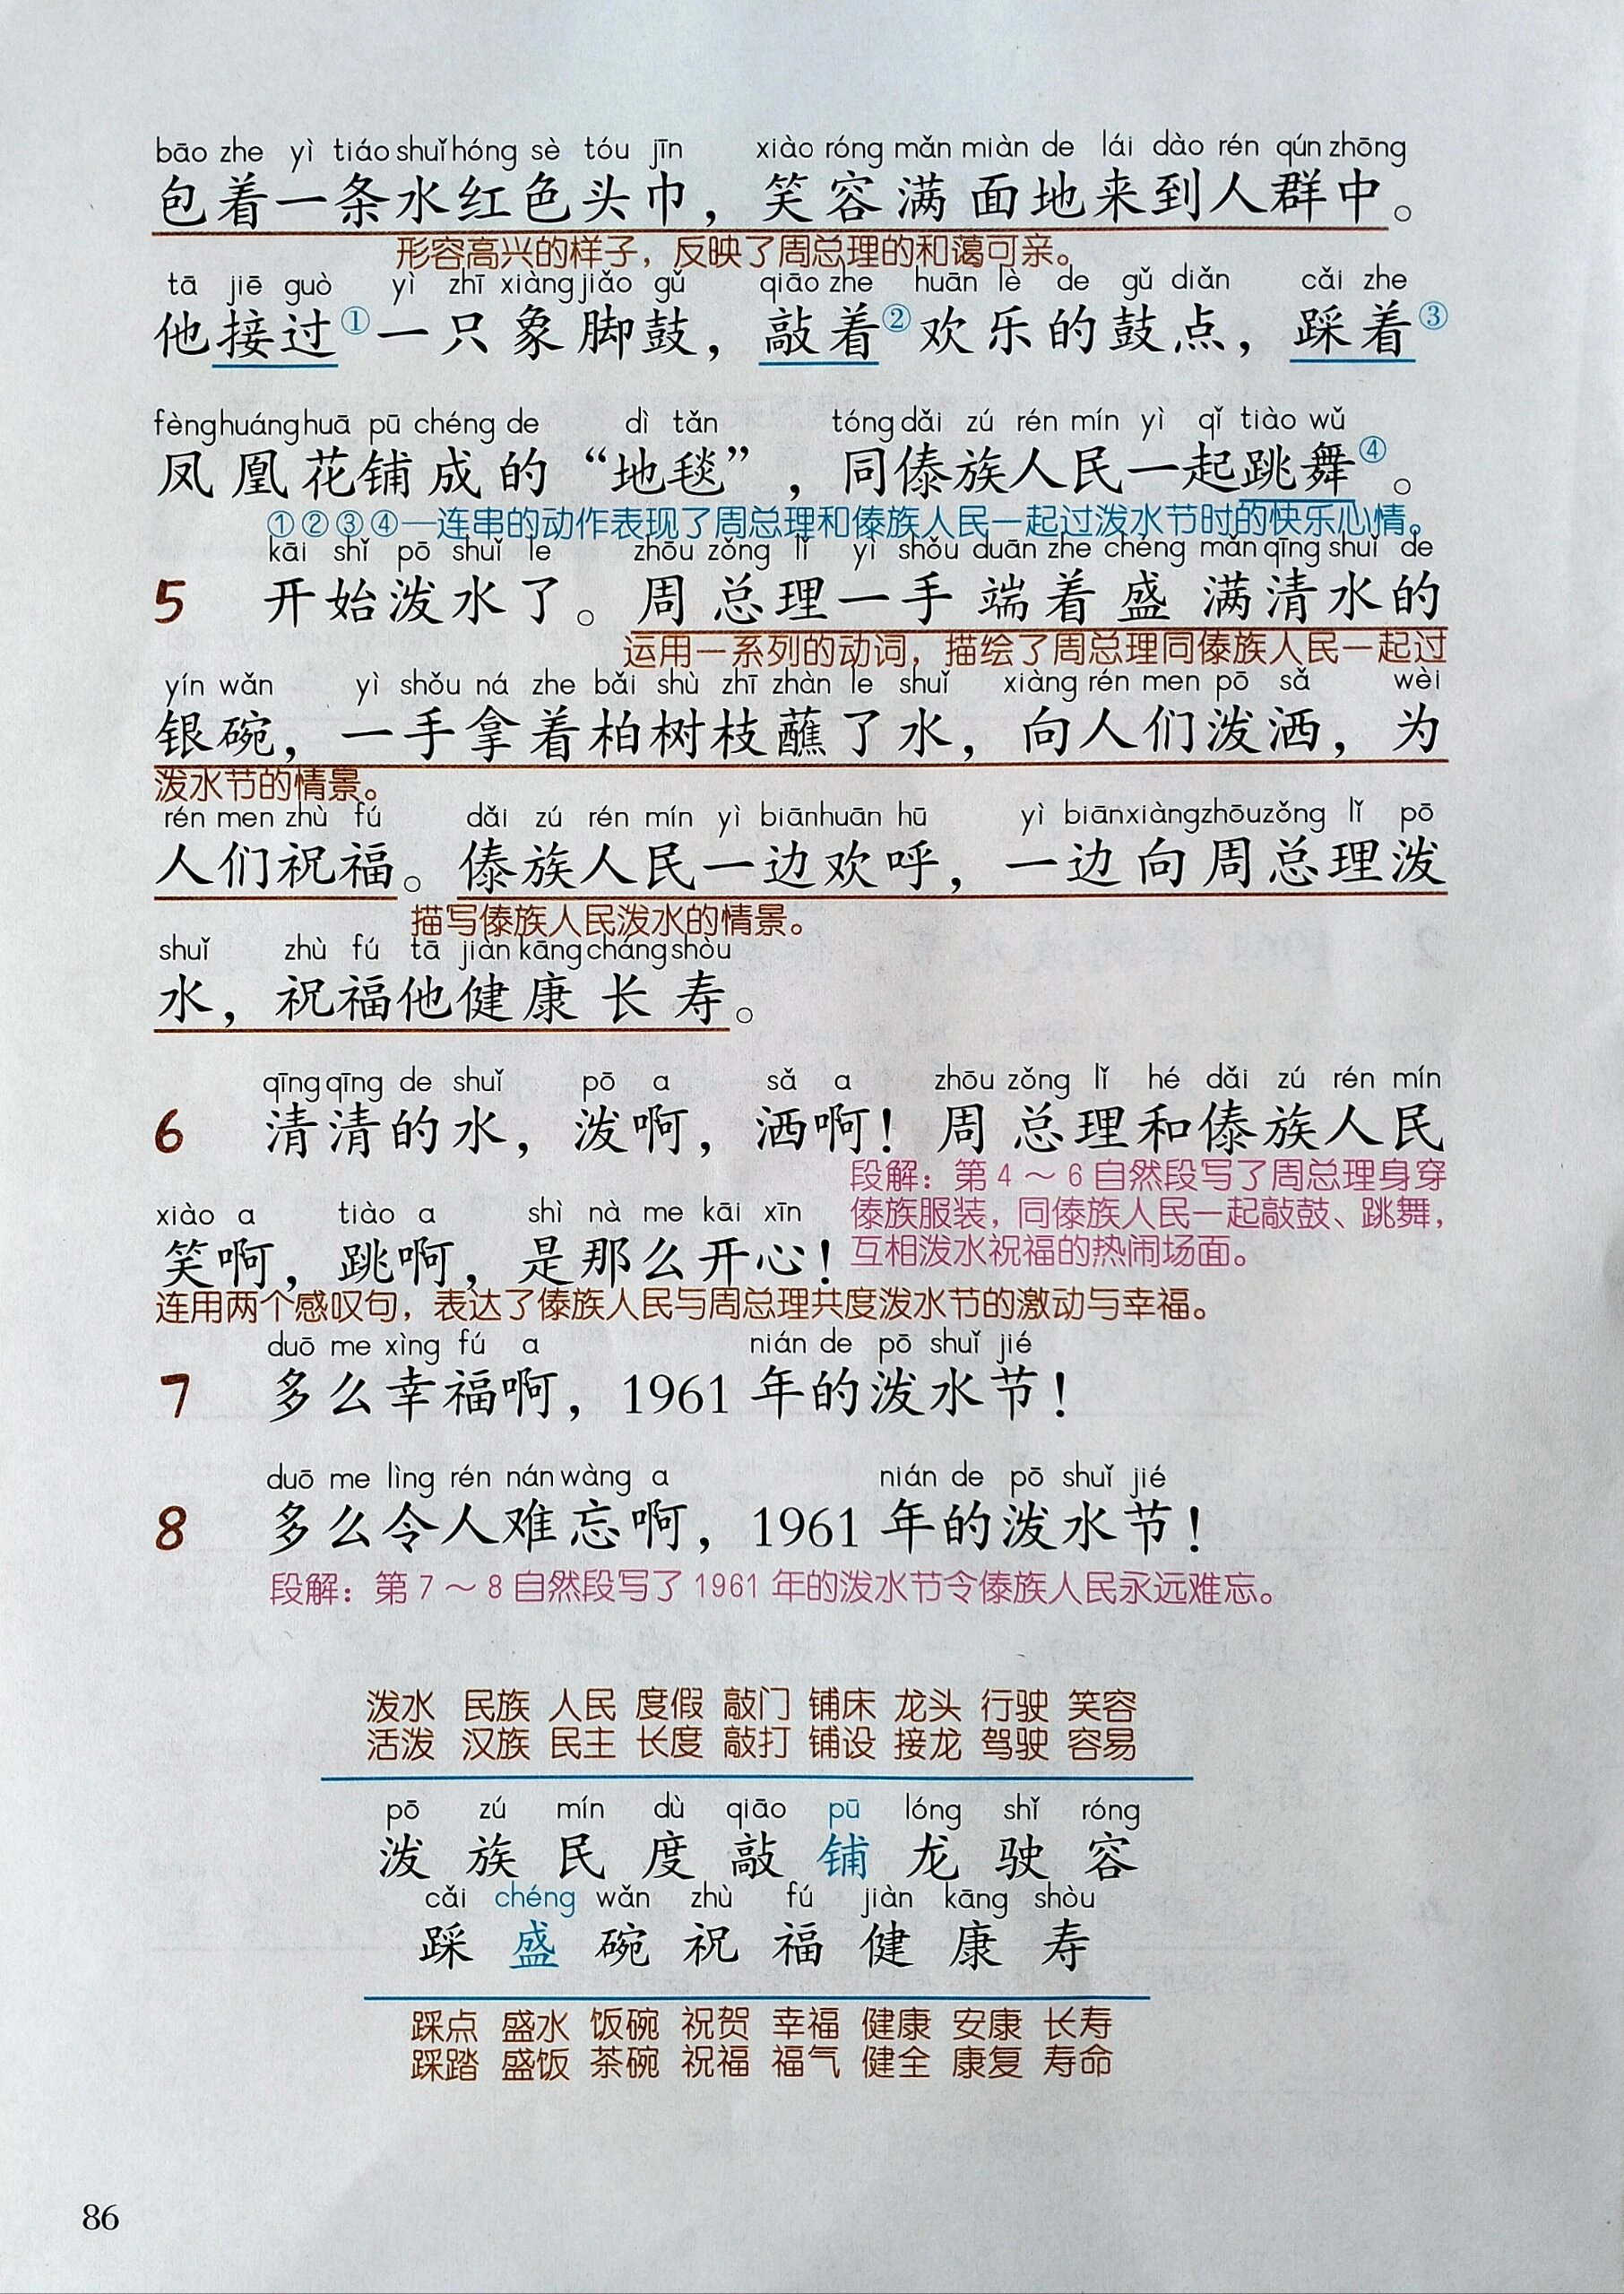 bāo zhe yì tiáo shuǐ hóng sè tóu jīn xiào róng mǎn miàn de lái dào rén qún zhōng
包着一条水红色头巾，笑容满面地来到人群中。
形容高兴的样子，反映了周总理的和蔼可亲。
tā jiē guò yì zhī xiàng jiǎo gǔ qiāo zhe huān lè de gǔ diǎn cǎi zhe
他接过①一只象脚鼓，敲着②欢乐的鼓点，踩着③
fèng huáng huā pū chéng de dì tǎn tóng dǎi zú rén mín yì qǐ tiào wǔ
凤凰花铺成的“地毯”，同傣族人民一起跳舞④。
①②③④一连串的动作表现了周总理和傣族人民一起过泼水节时的快乐心情。
kāi shǐ pō shuǐ le zhōu zǒng lǐ yì shǒu duān zhe chéng mǎn qīng shuǐ de
5 开始泼水了。周总理一手端着盛满清水的
运用一系列的动词，描绘了周总理同傣族人民一起过
yín wǎn yì shǒu ná zhe bǎi shù zhī zhàn le shuǐ xiàng rén men pō sǎ wèi
银碗，一手拿着柏树枝蘸了水，向人们泼洒，为
泼水节的情景。
rén men zhù fú dǎi zú rén mín yì biān huān hū yì biān xiàng zhōu zǒng lǐ pō
人们祝福。傣族人民一边欢呼，一边向周总理泼
描写傣族人民泼水的情景。
shuǐ zhù fú tā jiàn kāng cháng shòu
水，祝福他健康长寿。
qīng qīng de shuǐ pō a sǎ a zhōu zǒng lǐ hé dǎi zú rén mín
6 清清的水，泼啊，洒啊！周总理和傣族人民
段解：第4～6自然段写了周总理身穿
傣族服装，同傣族人民一起敲鼓、跳舞，
互相泼水祝福的热闹场面。
xiào a tiào a shì nà me kāi xīn
笑啊，跳啊，是那么开心！
连用两个感叹句，表达了傣族人民与周总理共度泼水节的激动与幸福。
duō me xìng fú a nián de pō shuǐ jié
7 多么幸福啊，1961年的泼水节！
duō me lìng rén nán wàng a nián de pō shuǐ jié
8 多么令人难忘啊，1961年的泼水节！
段解：第7～8自然段写了1961年的泼水节令傣族人民永远难忘。
泼水 民族 人民 度假 敲门 铺床 龙头 行驶 笑容
活泼 汉族 民主 长度 敲打 铺设 接龙 驾驶 容易
pō zú mín dù qiāo pū lóng shǐ róng
泼 族 民 度 敲 铺 龙 驶 容
cǎi chéng wǎn zhù fú jiàn kāng shòu
踩 盛 碗 祝 福 健 康 寿
踩点 盛水 饭碗 祝贺 幸福 健康 安康 长寿
踩踏 盛饭 茶碗 祝福 福气 健全 康复 寿命
86